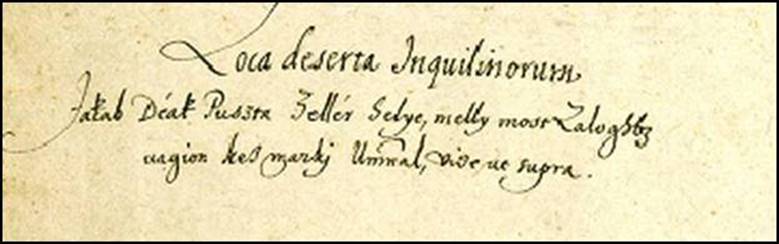 Loca deserta Inquilinorum
Jakab Déak Puszta Zellér Helye, melly most Zalogh
vagion kes markj Ur̃mal, vide ut supra.